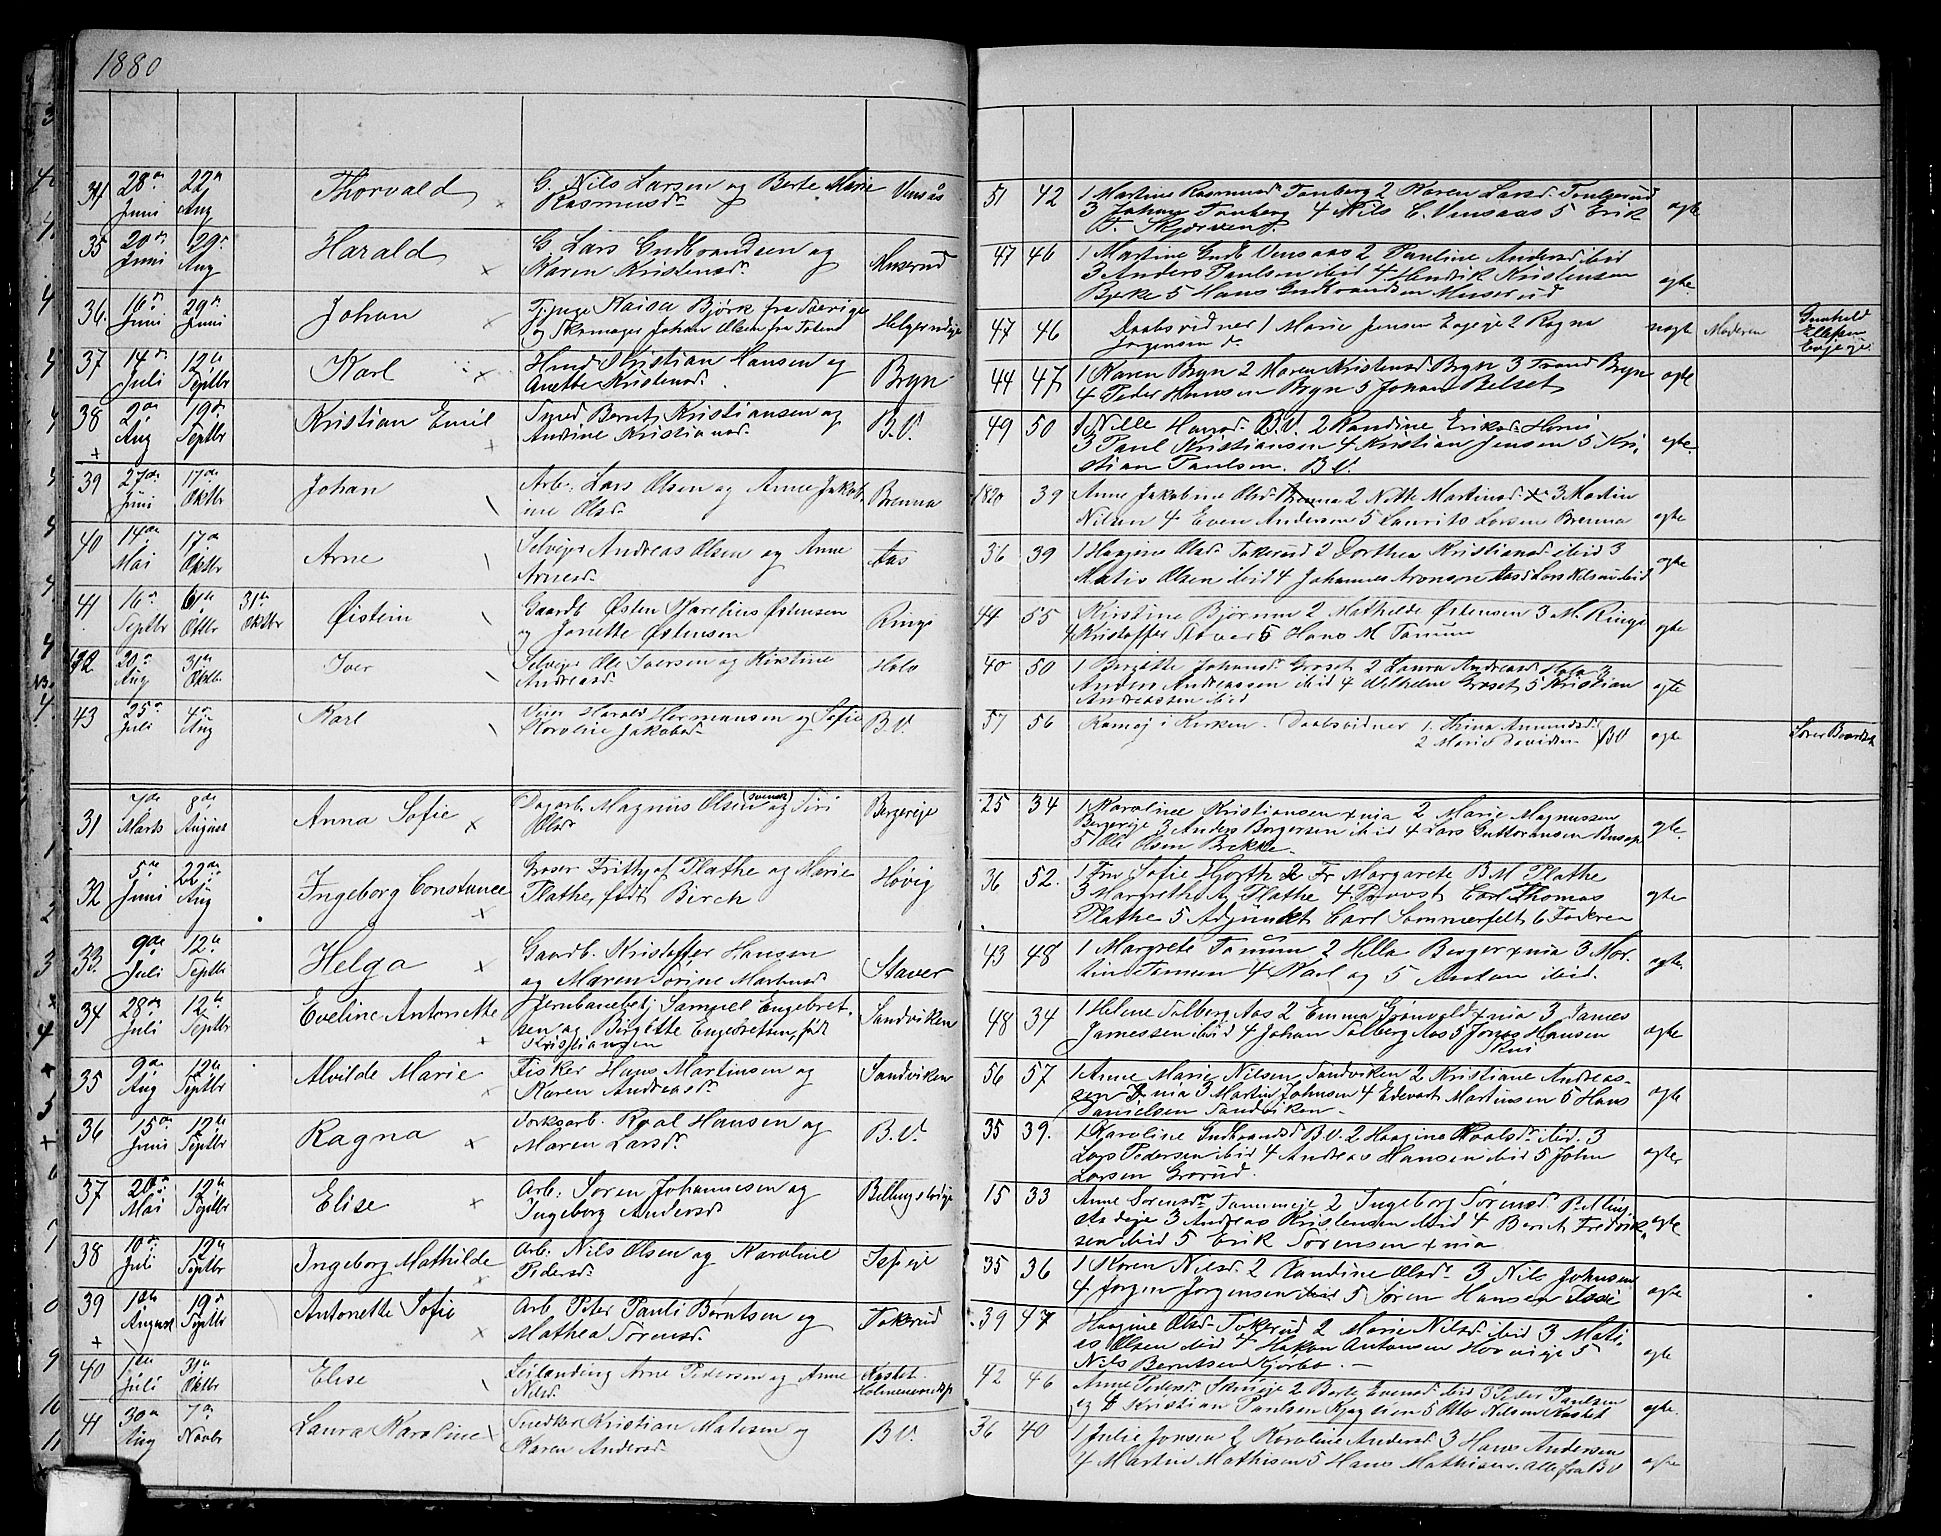 1880
28de 22de Thorvald G. Nils Larsen og Berte Marie Vensås
Juni Aug Rasmusdr.
35 20de 29de Harald G. Lars Gudbrandsen og Muserud
Juni Aug Karen Kristensdr.
36 16de 29de Johan Björk fra Sverige Helgerudeje
Juni Juni og Skomager Johan Olsen fra Toten
37 14de 12te Karl Hmd. Kristian Hansen og Bryn
Juli Septbr Anette Kristensd.
38 2den 19de Kristian Emil Smed Bernt Kristiansen og B.V.
Aug Septbr Andine Kristiansd.
39 27de 17de Johan Arb. Lars Olsen og Anne Jakob- Brenna
Juni Oktbr ine Olsd.
40 14de 17de Arne Selvejer Andreas Olsen og Anne Aas
Mai Oktbr Arnesd.
41 16de 31te Øistein Gaardb. Østen Marelius Østensen Ringi
Septbr Oktbr og Janette Østensen
20de 31te Iver Selvejer Ole Iversen og Kirstine Holo
Aug Oktbr. Andreasd.
43 25de 4de Karl Harald Hermansen og Sofie B.V.
Juli Aug Karoline Jakobsdr
31 7de 8de Anna Sofie Dagarb. Magnus Olsen (svensk) og Siri Bergereje
Marts August Olsdr
32 5te 22de Ingeborg Constance Groser Frithjof Plathe og Marie Høvig
Juni Aug Plathe, født Birch
33 9de 12te Helga Gaardb. Kristoffer Hansen Staver
Juli Septbr og Maren Sørine
34 28de 12te Eveline Antonette Jernbanebetj Samuel Engebret- Sandviken
Juli Septbr sen og Birgitte Engebretsen, født
Kristiansen
35 9de 12te Alvilde Marie Fisker Hans Martinsen og Sandviken
Aug Septbr Karen Andreasdr.
36 15de 12te Ragna Roal Hansen og B.V.
Juni Septbr Maren Larsdr.
37 20de 12te Elise Arb. Søren Johannesen og Billingstadeje
Mai Septbr Ingeborg Andersd.
38 10de 12te Ingeborg Mathilde Arb. Nils Olsen og Karoline
Juli Septbr Pedersd.
39 19de Antonette Sofie Arb. Peter Pauli Berntsen og Tokerud
August Septbr Mathea Sørensd.
40 31te Elise Leilænding Arne Pedersen og Anne
Juli Oktbr Nilsd.
41 30te 7de Laura Karoline Snedker Kristian Matisen og B.V.
Aug Novbr Karen Andersd.
51 42 1 Martine Rasmusd. Tanberg 2 Karen Larsd.
3 Johan Tanberg 4 Nils C. Vensaas 5 Erik ægte
47 46 1 Martine Gudb Vensaas 2 Pauline Andersd ibid
3 Anders Paulsen ibid 4 Hendrik Kristensen ægte.
5 Hans Gudbrandsen Muserud
47 46 Daabsvidner 1 Marie Jensen Evjeje 2 Ragna uægte Moderen Gunhild
Jørgensen do Ellefsen
Evjeje
44 47 1 Karen Bryn 2 Maren Kristensd Bryn 3 Trond Bryn ægte
4 Peder Hansen Bryn 5 Johan Belset
49 50 1 Nille B.V. 2 Randine Eriksd.
3 Paul Kristiansen 4 Kristian Jensen 5 Kri- ægte.
stian Paulsen. B.V.
39 Anne Jakobine Olsd. Brenna 2 Nette Martinsd. 3 Martin
Nilsen 4 Even Andersen 5 Laurits Larsen Brenna ægte
36 39 1 Haagine Olsd. Tokerud 2 Dorthea Kristiansd. ibid 3 ægte
Matis Olsen ibid 4 Johannes Aronsen Aas 5 Lars Nilsen ibid
44 55 Kirstine Bjørum 2 Mathilde Østensen 3 M. Ringi ægte
4 Kristoffer Staver 5 Hans M Tanum
40 50 1 Birgitte Johansd. Groset 2 Laura Andreasd Holo 3
Anders Andreassen ibid 4 Vilhelm Groset 5 Kristian ægte
Andreassen ibid
57 56 i Kirken. Daabsvidner 1. Thina Amundsd. BV ægte
2 Marie Davidsen
25 34 1 Karoline Kristiansen 2 Marie Magnussen
Bergereje 3 Anders Borgersen ibid 4 Lars Guttormsen ægte.
5 Ole Olsen Brekke
36 52. 1 Fru Sofie Hjorth 2 Fr Margarete B M Plathe
3 Margrethe A Plathe 4 Provst Carl Thomas ægte
Plathe 5 Adjunkt Carl Sommerfelt 6 Faderen
43 48 1 Margrete Tanum 2 Hella Berger 3 Mar- ægte.
tin Jensen 4 Karl og 5 Anton ibid.
48 34 1 Helene Solberg Aas 2 Emma Grønvold 3 James
Jamessen ibid 4 Johan Solberg Aas 5 Jonas Hansen ægte
Skui
56 57 1 Anne Marie Nilsen Sandviken 2 Kristiane Andreas-
sen 3 Martin Johnsen 4 Edevart Martinsen 5 Hans ægte
Danielsen Sandviken
35 39. 1 Karoline Gudbrandsd B.V. 2 Haagine Roalsdr. ibid. 3
Lars Pedersen ibid 4 Andreas Hansen ibid 5 John ægte
Larsen Grorud.
15 33 Anne Sørensdr. Tanumeje 2 Ingeborg Sørensd. Billing-
stadeje 3 Andreas Kristensen ibid 4 Berit Fredrik- ægte
sen ibid 5 Erik Sørensen
35 36 1 Karen Nilsd. 2 Randine Olsdr. 3 Nils Johnsen
4 Jørgen Jørgensen ibid 5 Søren Hansen ægte
39 47 Haagine Olsd. Tokerud 2 Marie Nilsd. ibid 3 Mati-
as Olsen ibid 4 Hakon Antonsen 5 ægte
Nils Berntsen Kjørbo.
42 46 Anne Pedersd. 2 Berte Evensd. ibid 3 Peder Paulsen
og 4 Kristian Paulsen 5 Otto Nilsen ægte.
36 40 1 Julie Jonsen 2 Karoline Andersd. 3 Hans Andersen
4 Martin Mathisen 5 Hans Mathisen. alle fra BV ægte